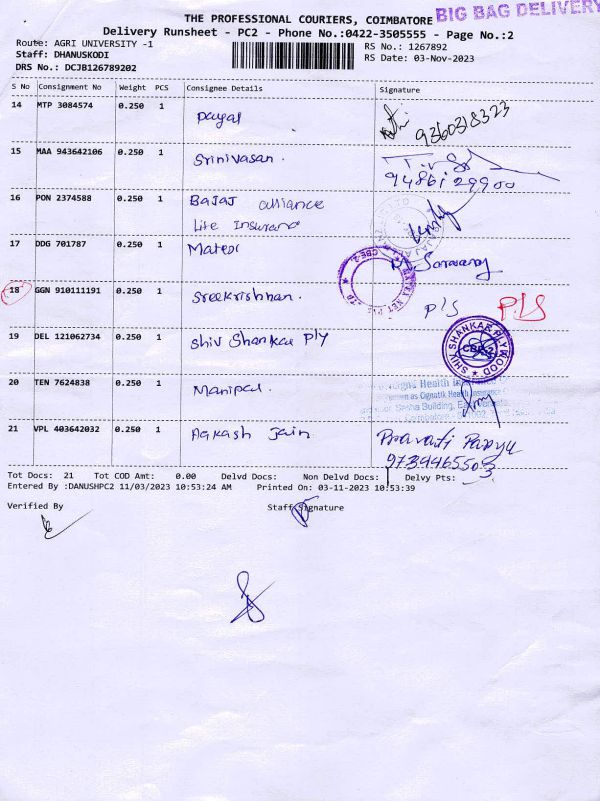 THE PROFESSIONAL COURIERS, COIMBATORE
BIG BAG DELIVERY
Delivery Runsheet - PC2 - Phone No.:0422-3505555 - Page No.:2
Route: AGRI UNIVERSITY -1
RS No.: 1267892
Staff: DHANUSKODI
RS Date: 03-Nov-2023
DRS No.: DCJB126789202
S No Consignment No Weight PCS Consignee Details Signature
14 MTP 3084574 0.250 1 payal
9360318323
15 MAA 943642106 0.250 1 Srinivasan.
9486129900
16 PON 2374588 0.250 1 Bajaj alliance
Life Insurance
17 DDG 701787 0.250 1
18 GGN 910111191 0.250 1 Sreekrishnan. P/S P/S
19 DEL 121062734 0.250 1 Shiv Shankar Ply
SHIV SHANKAR PLYWOOD
CBE-2
20 TEN 7624838 0.250 1 Manipal
21 VPL 403642032 0.250 1 Aakash Jain
9739465503
Tot Docs: 21 Tot COD Amt: 0.00 Delvd Docs: Non Delvd Docs: Delvy Pts:
Entered By :DANUSHPC2 11/03/2023 10:53:24 AM Printed On: 03-11-2023 10:53:39
Verified By Staff Signature